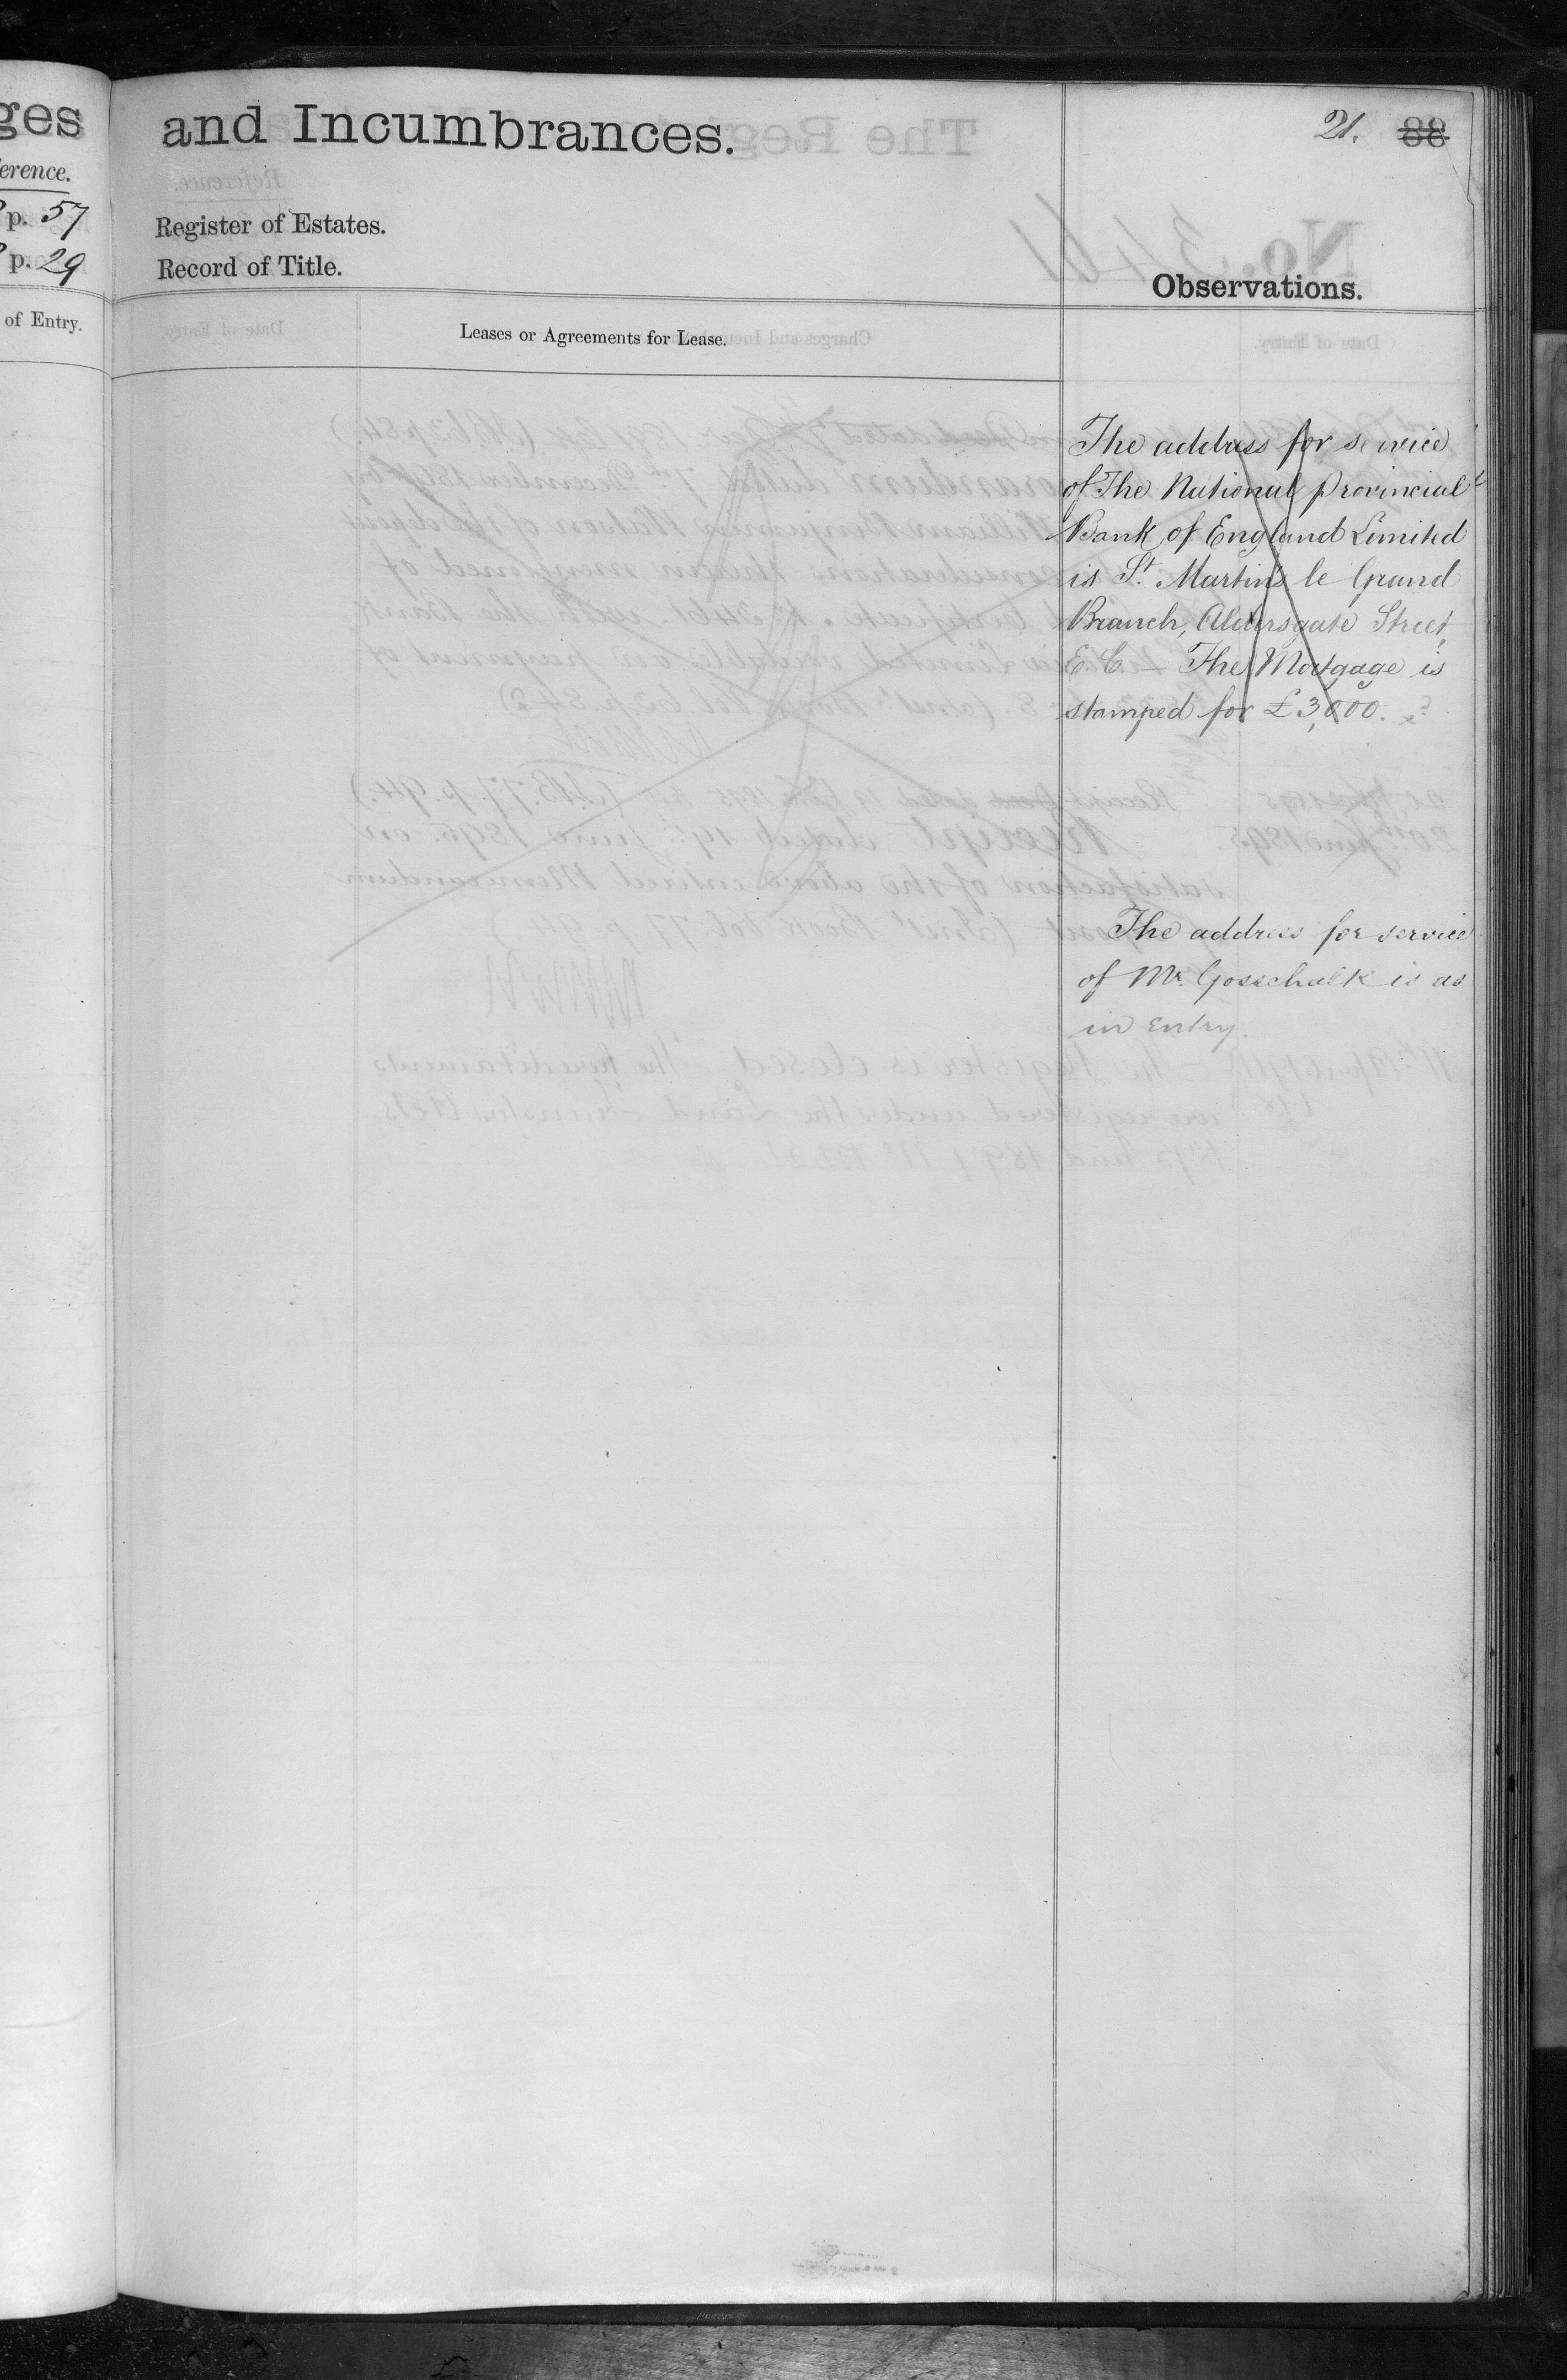 ges
erence.
p. 57
p. 29
of Entry.
and Incumbrances.
21. 88
Register of Estates.
Record of Title.
Observations.
Leases or Agreements for Lease.
The address for service
of The National Provincial
Bank of England Limited
is St. Martin's le Grand
Branch, Aldersgate Street,
E.C. — The Mortgage is
stamped for £3,000.
The address for service
of Mr. Gosschalk is as
in entry.